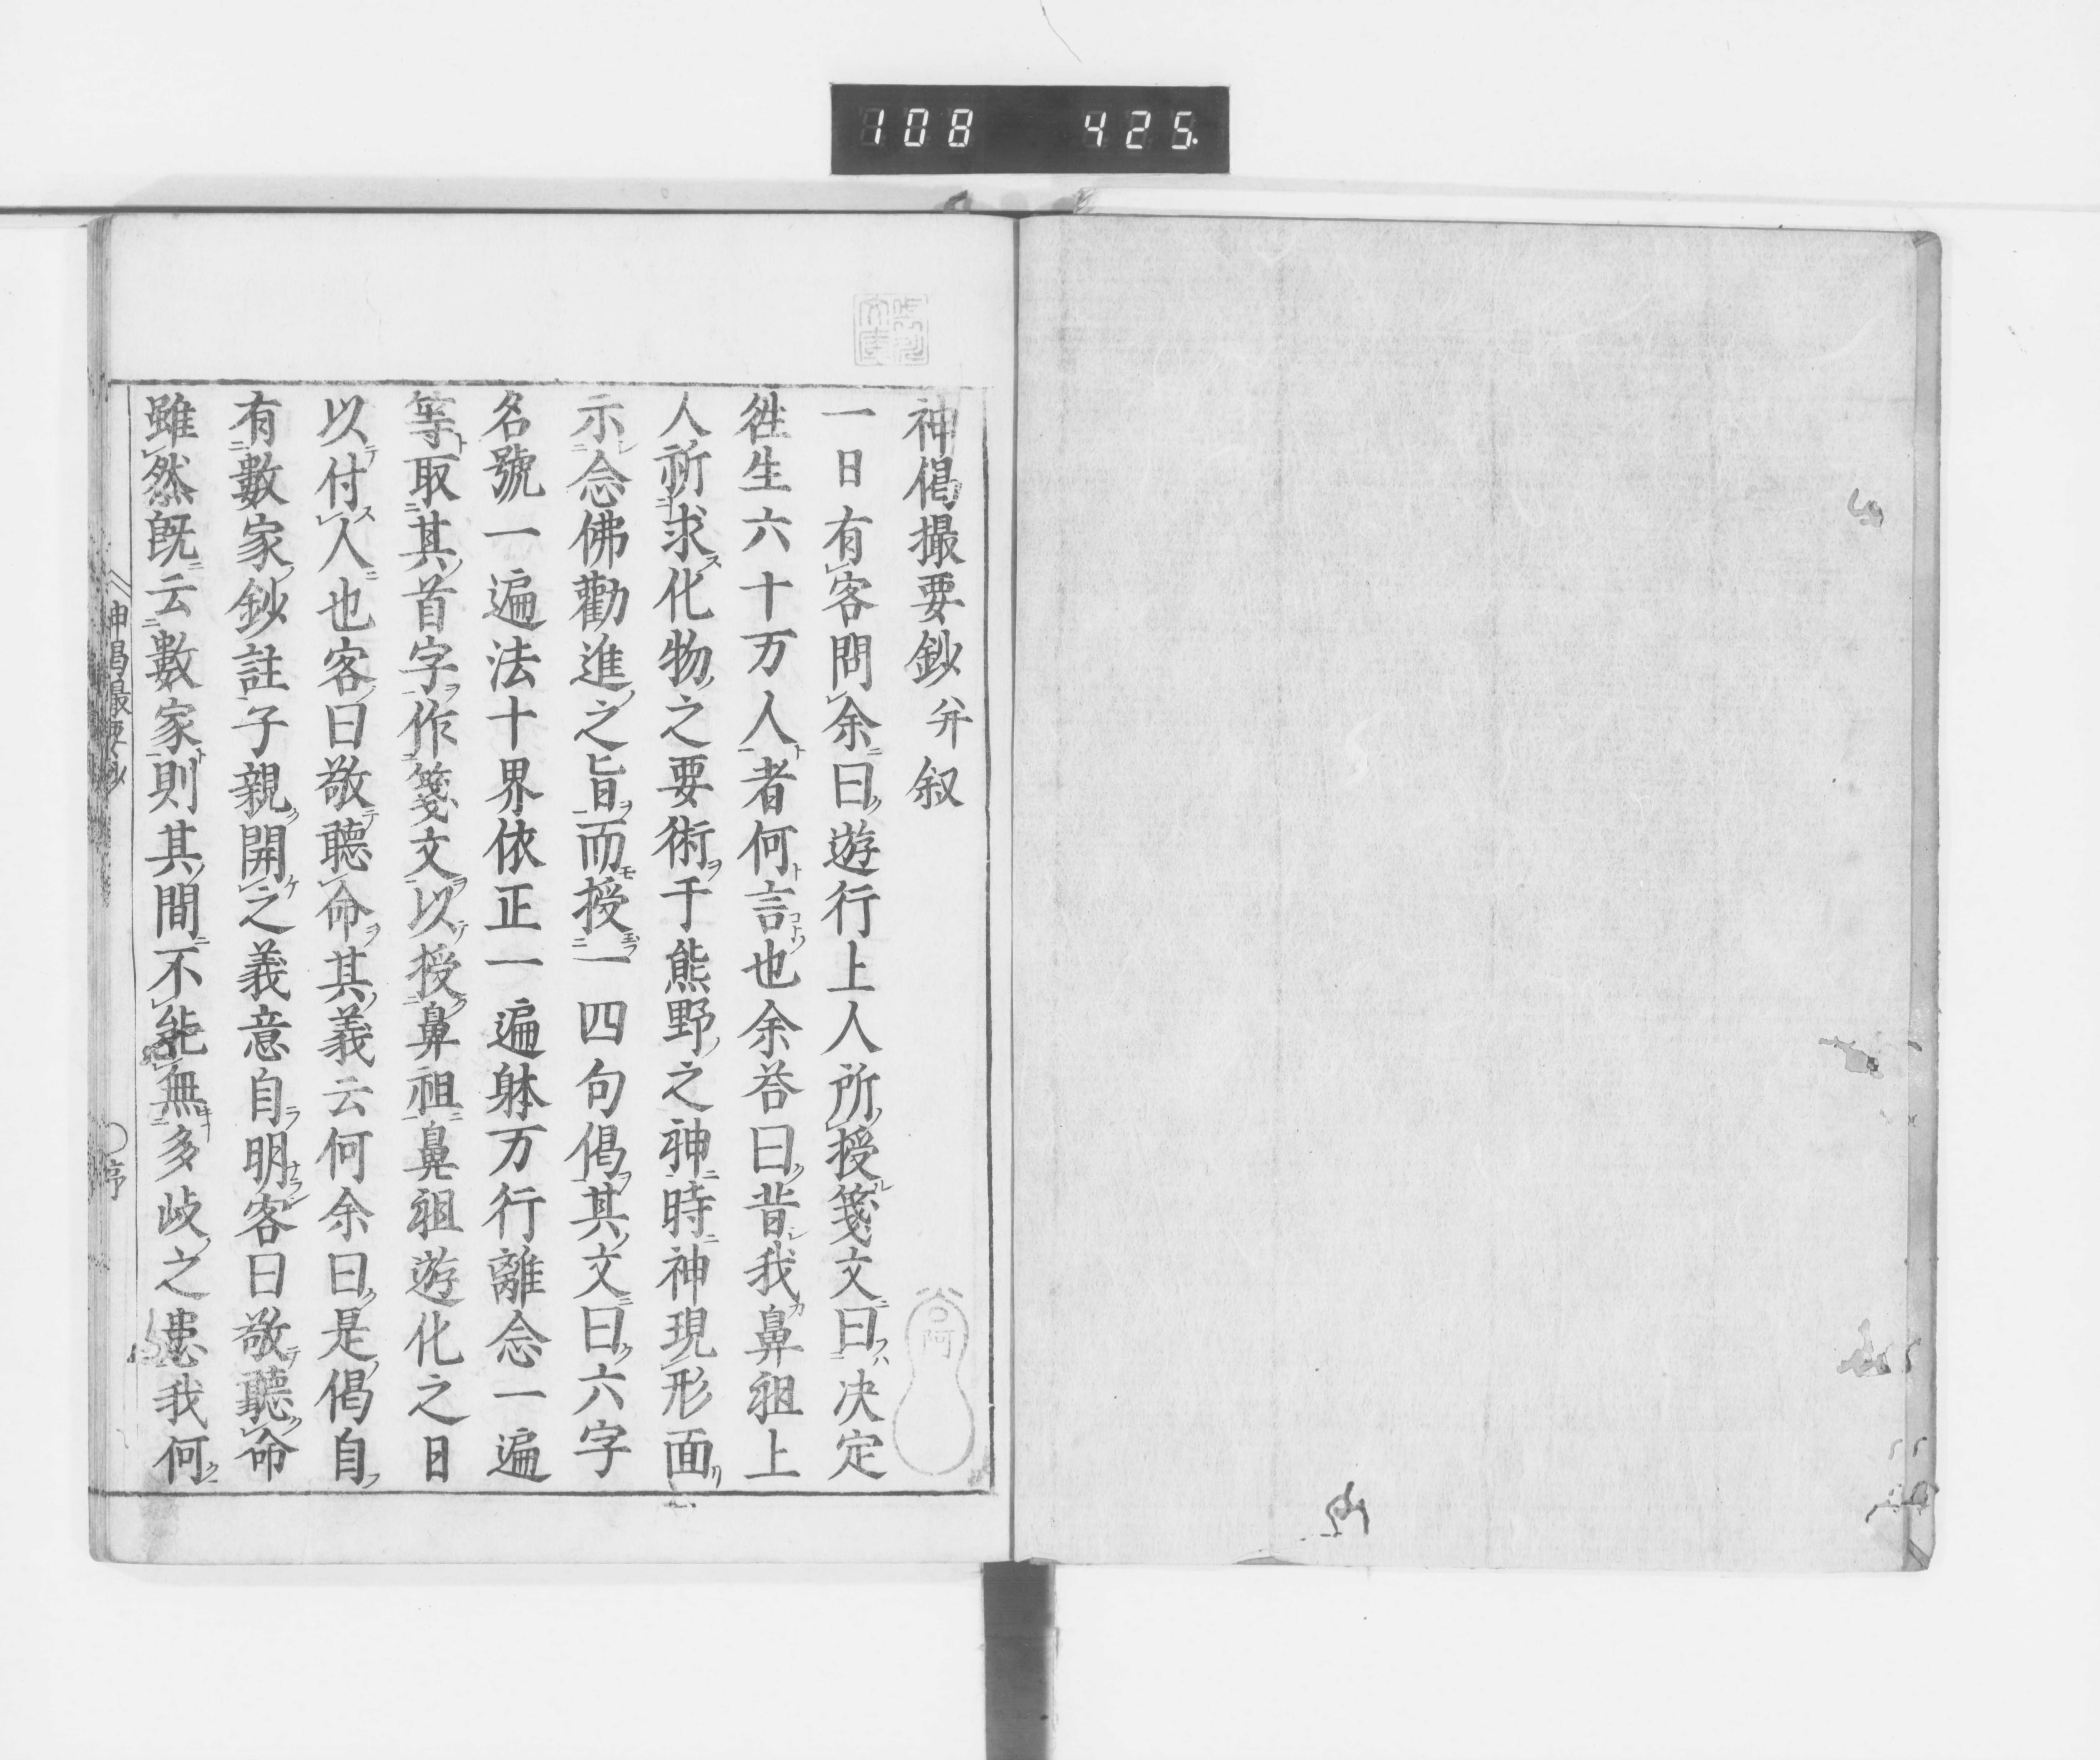 108 425.
神偈撮要鈔 并叙
一日有客問余曰遊行上人所授箋文曰决定
徃生六十万人者何言也余荅曰昔我鼻祖上
人祈求化物之要術于熊野之神時神現形面
示念佛勸進之旨而授一四句偈其文曰六字
名號一遍法十界依正一遍躰万行離念一遍
等取其首字作箋文以授鼻祖鼻祖遊化之日
以付人也客曰敬聽命其義云何余曰是偈自
有數家鈔註子親開之義意自明客曰敬聽命
雖然既云數家則其間不能無多岐之患我何
神偈撮要鈔 〇序